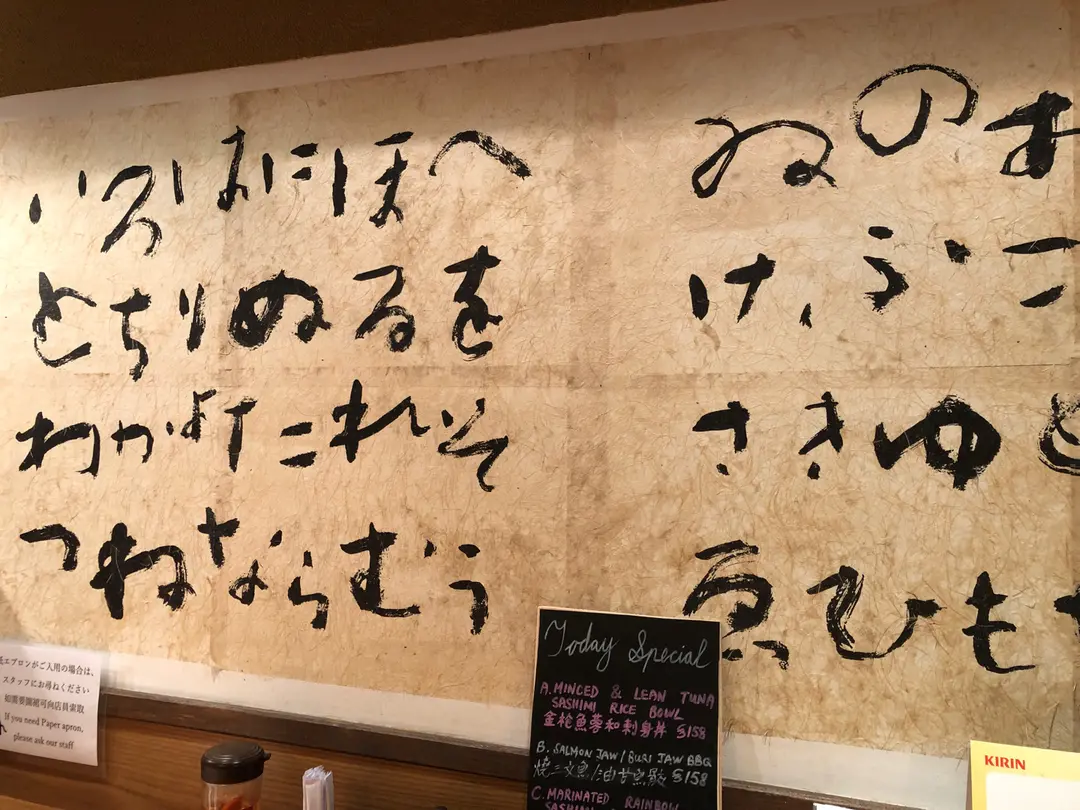 いろはにほへ
とちりぬるを
わかよたれそ
つねならむう
ゐのお
けふこ
さきゆ
ゑひも
エプロンがご入用の場合は、
スタッフにお尋ねください
如需要圍裙可向店員索取
If you need Paper apron,
please ask our staff
Today Special
A. MINCED & LEAN TUNA
SASHIMI RICE BOWL
金枪魚蓉和刺身丼 $158
B. SALMON JAW / BURI JAW BBQ
焼三文魚/油甘魚鮫 $158
C. MARINATED RAINBOW
SASHIMI
KIRIN